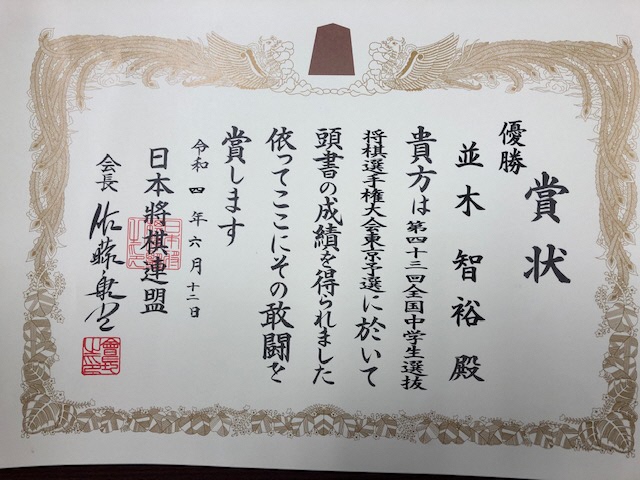 賞状
優勝
並木智裕殿
貴方は第四十三回全国中学生選抜
将棋選手権大会東京予選に於いて
頭書の成績を得られました
依ってここにその敢闘を
賞します
令和四年六月十二日
日本將棋連盟
会長 佐藤康光